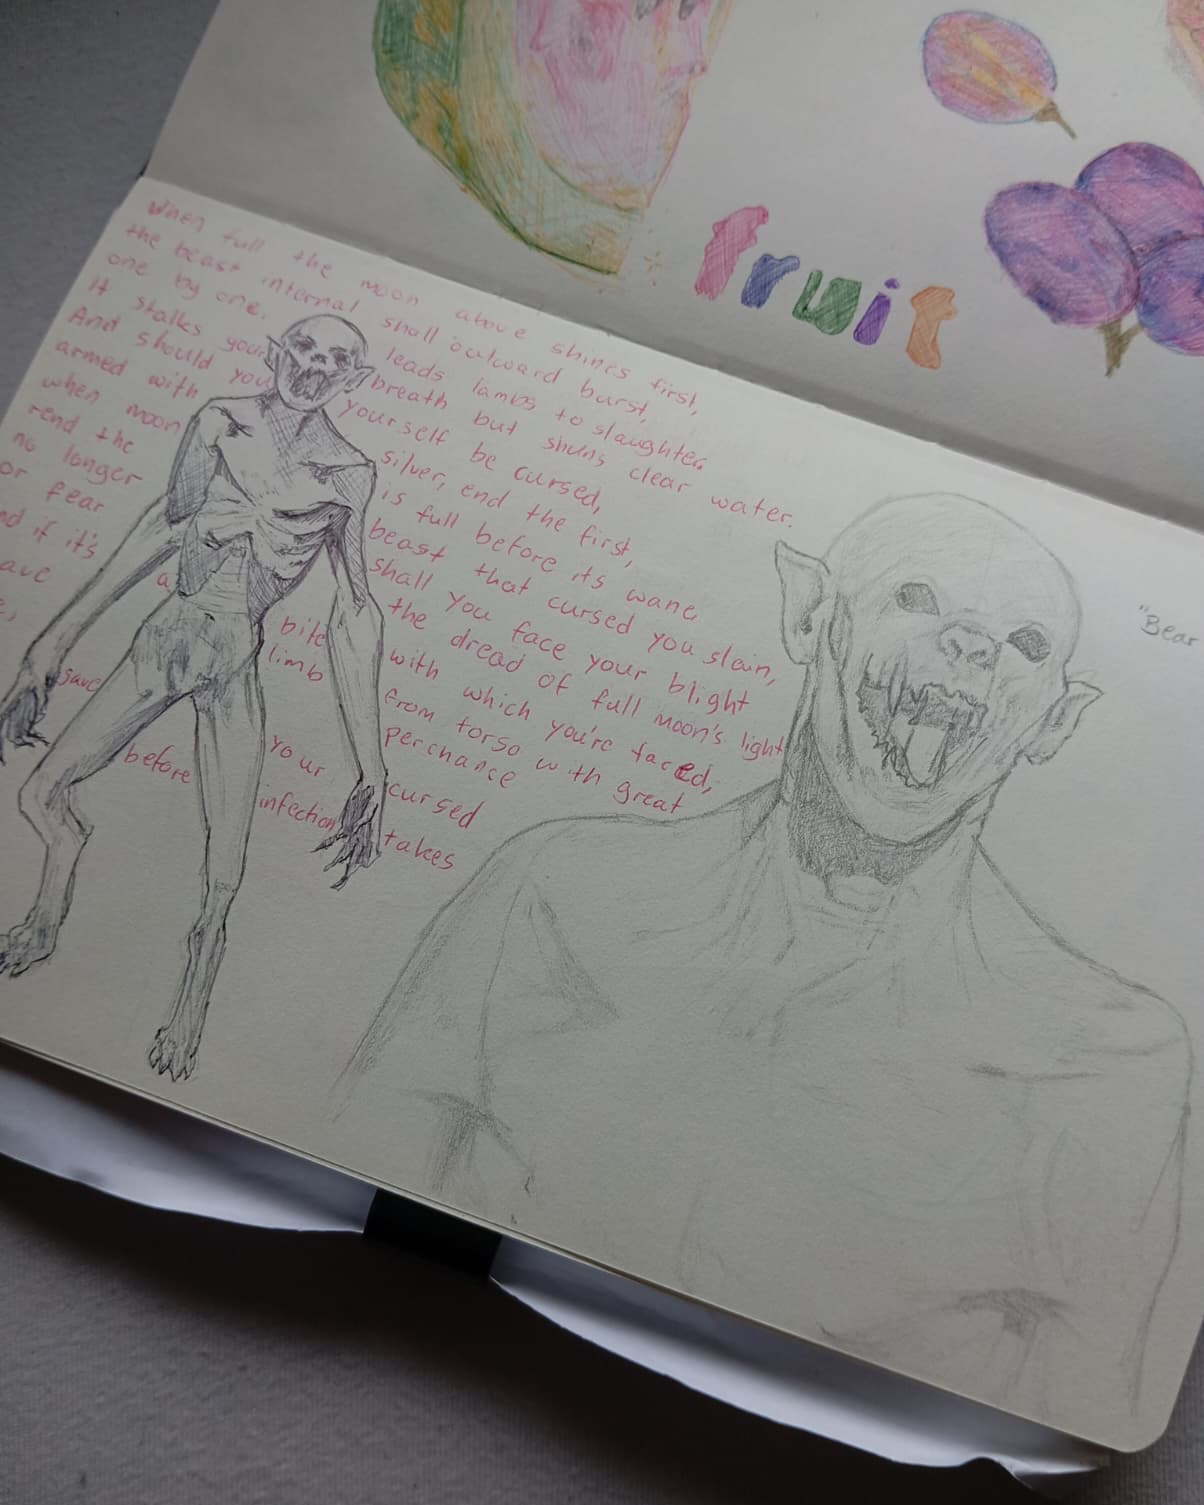 fruit
When full the moon above shines first,
the beast internal shall outward burst,
one by one. leads lambs to slaughter.
It stalks your breath but shuns clear water.
And should you yourself be cursed,
armed with silver, end the first,
when moon is full before its wane.
rend the beast that cursed you slain,
no longer shall you face your blight
or fear the dread of full moon's light
if it's a bite with which you're faced,
limb from torso with great
perchance
save your cursed
before infection takes
"Bear